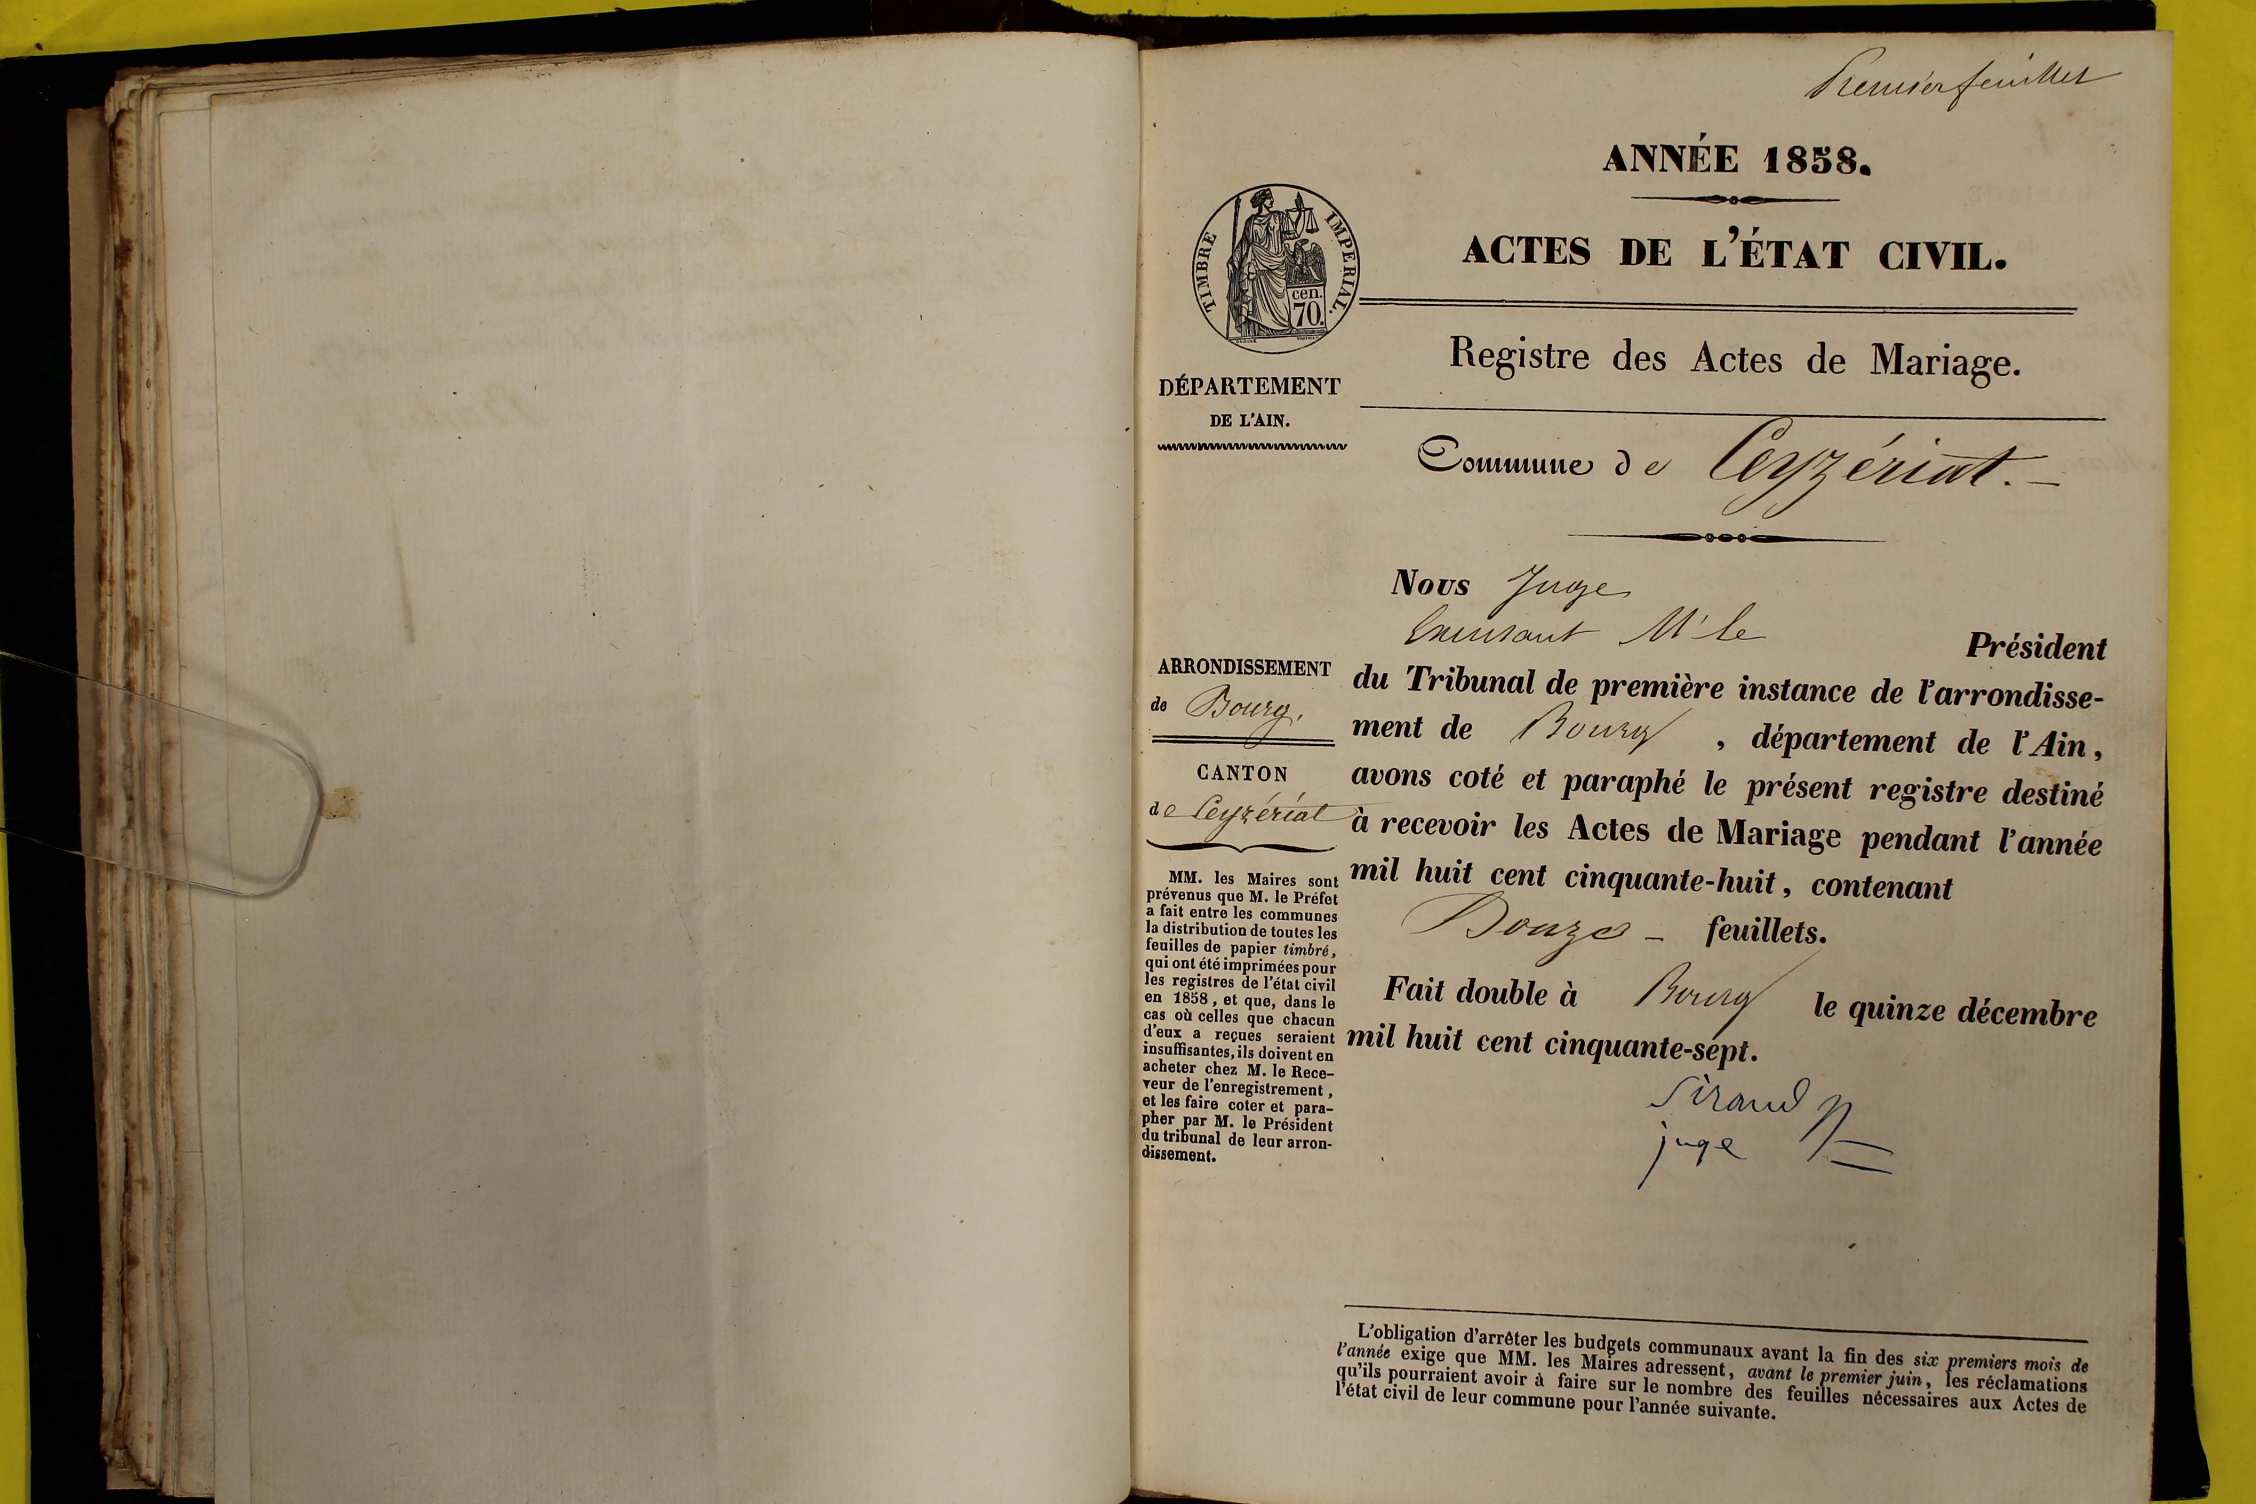 Premier feuillet
ANNÉE 1858.
ACTES DE L'ÉTAT CIVIL.
TIMBRE IMPERIAL.
cen.
70.
Registre des Actes de Mariage.
DÉPARTEMENT
DE L'AIN.
Commune de Ceyzériat. —
Nous Juge
M' le Président
du Tribunal de première instance de l'arrondisse-
ment de Bourg, département de l'Ain,
avons coté et paraphé le présent registre destiné
à recevoir les Actes de Mariage pendant l'année
mil huit cent cinquante-huit, contenant
Douze — feuillets.
Fait double à Bourg le quinze décembre
mil huit cent cinquante-sept.
Sirand
juge
ARRONDISSEMENT
de Bourg.
CANTON
de Ceyzériat
MM. les Maires sont
prévenus que M. le Préfet
a fait entre les communes
la distribution de toutes les
feuilles de papier timbré,
qui ont été imprimées pour
les registres de l'état civil
en 1858, et que, dans le
cas où celles que chacun
d'eux a reçues seraient
insuffisantes, ils doivent en
acheter chez M. le Rece-
veur de l'enregistrement,
et les faire coter et para-
pher par M. le Président
du tribunal de leur arron-
dissement.
L'obligation d'arrêter les budgets communaux avant la fin des six premiers mois de
l'année exige que MM. les Maires adressent, avant le premier juin, les réclamations
qu'ils pourraient avoir à faire sur le nombre des feuilles nécessaires aux Actes de
l'état civil de leur commune pour l'année suivante.